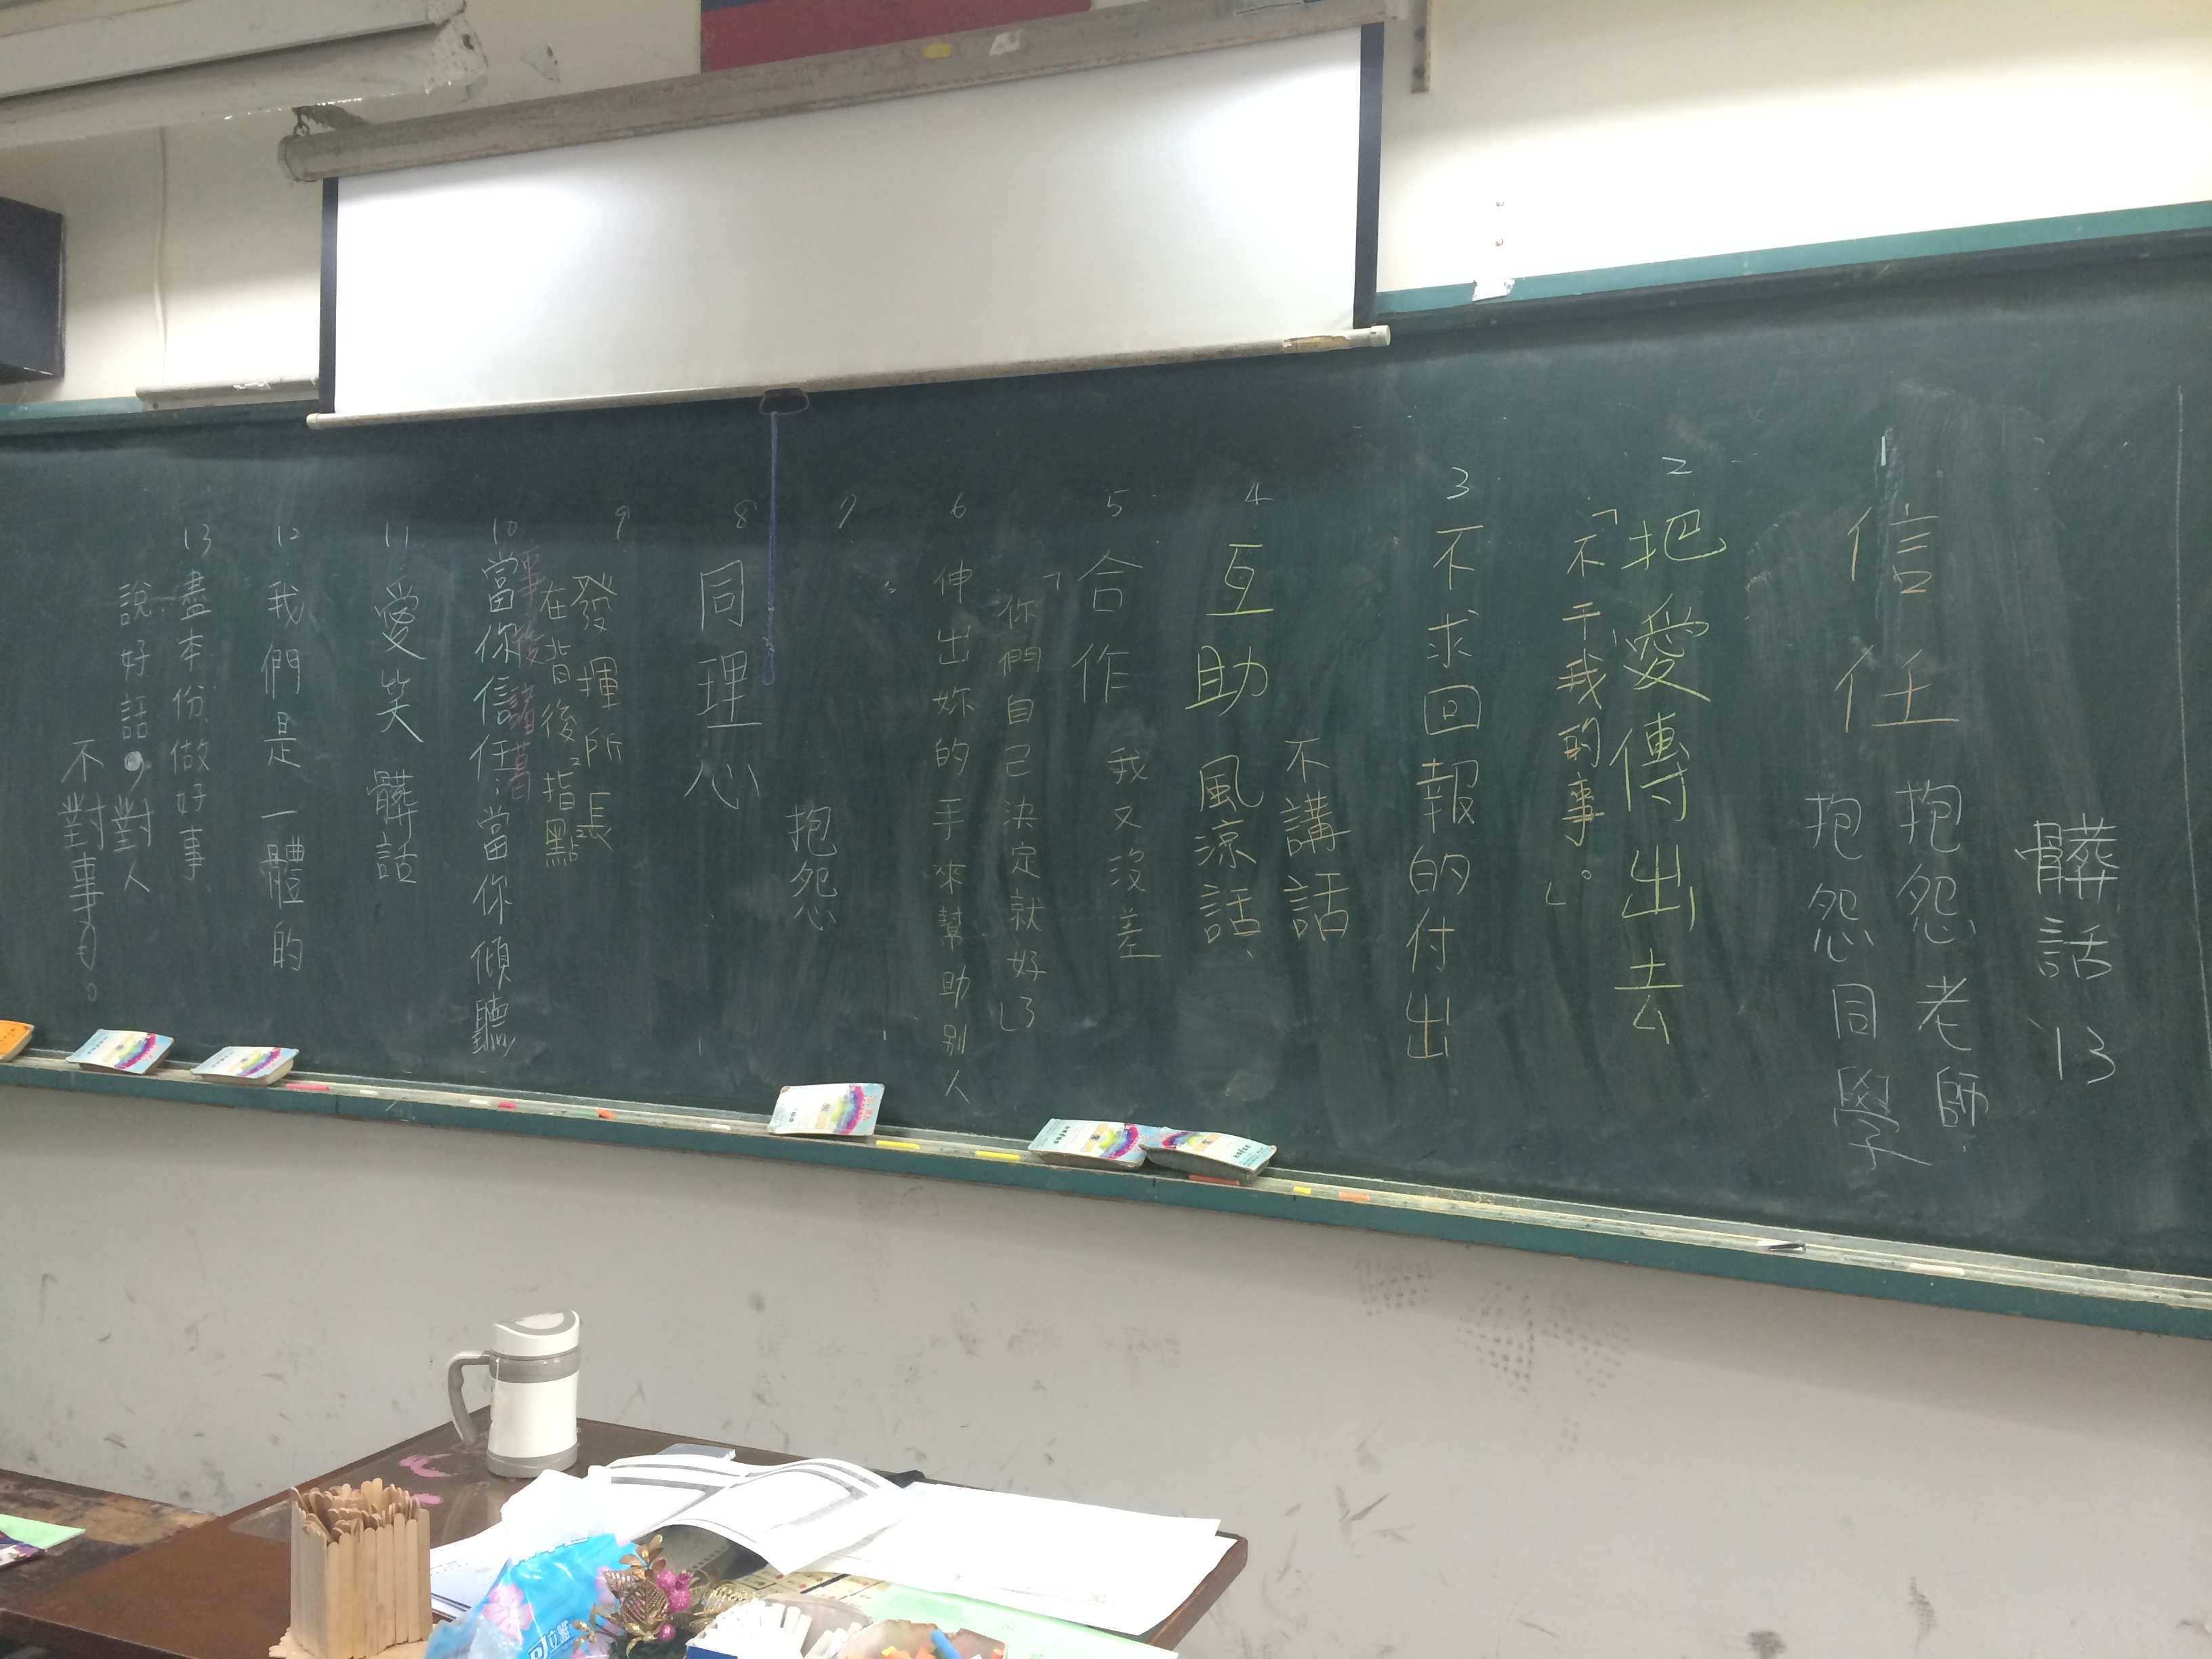 髒話 13
1
信任
抱怨老師
抱怨同學
2
把愛傳出去
「不干我的事」。
3
不求回報的付出
4
不講話
互助 風涼話
5
我又沒差
合作
「你們自己決定就好了」
6
伸出妳的手來幫助別人
7
抱怨
8
同理心
9
發揮所長
在背後指指點點
事後諸葛
10
當你信任:當你傾聽
11
愛笑 髒話
12
我們是一體的
13
盡本份、做好事、
說好話,對人
不對事。